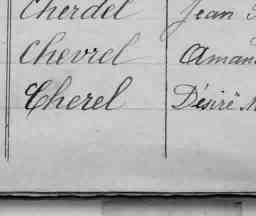 Cherdel Jean
Chevrel Aman
Cherel Désiré M